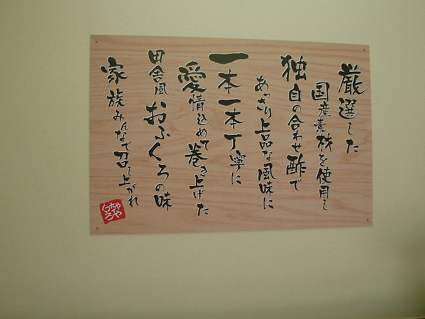 厳選した
国産素材を使用し
独自の合わせ酢で
あっさり上品な風味に
一本一本丁寧に
愛情込めて巻き上げた
田舎風おふくろの味
家族みんなで召し上がれ